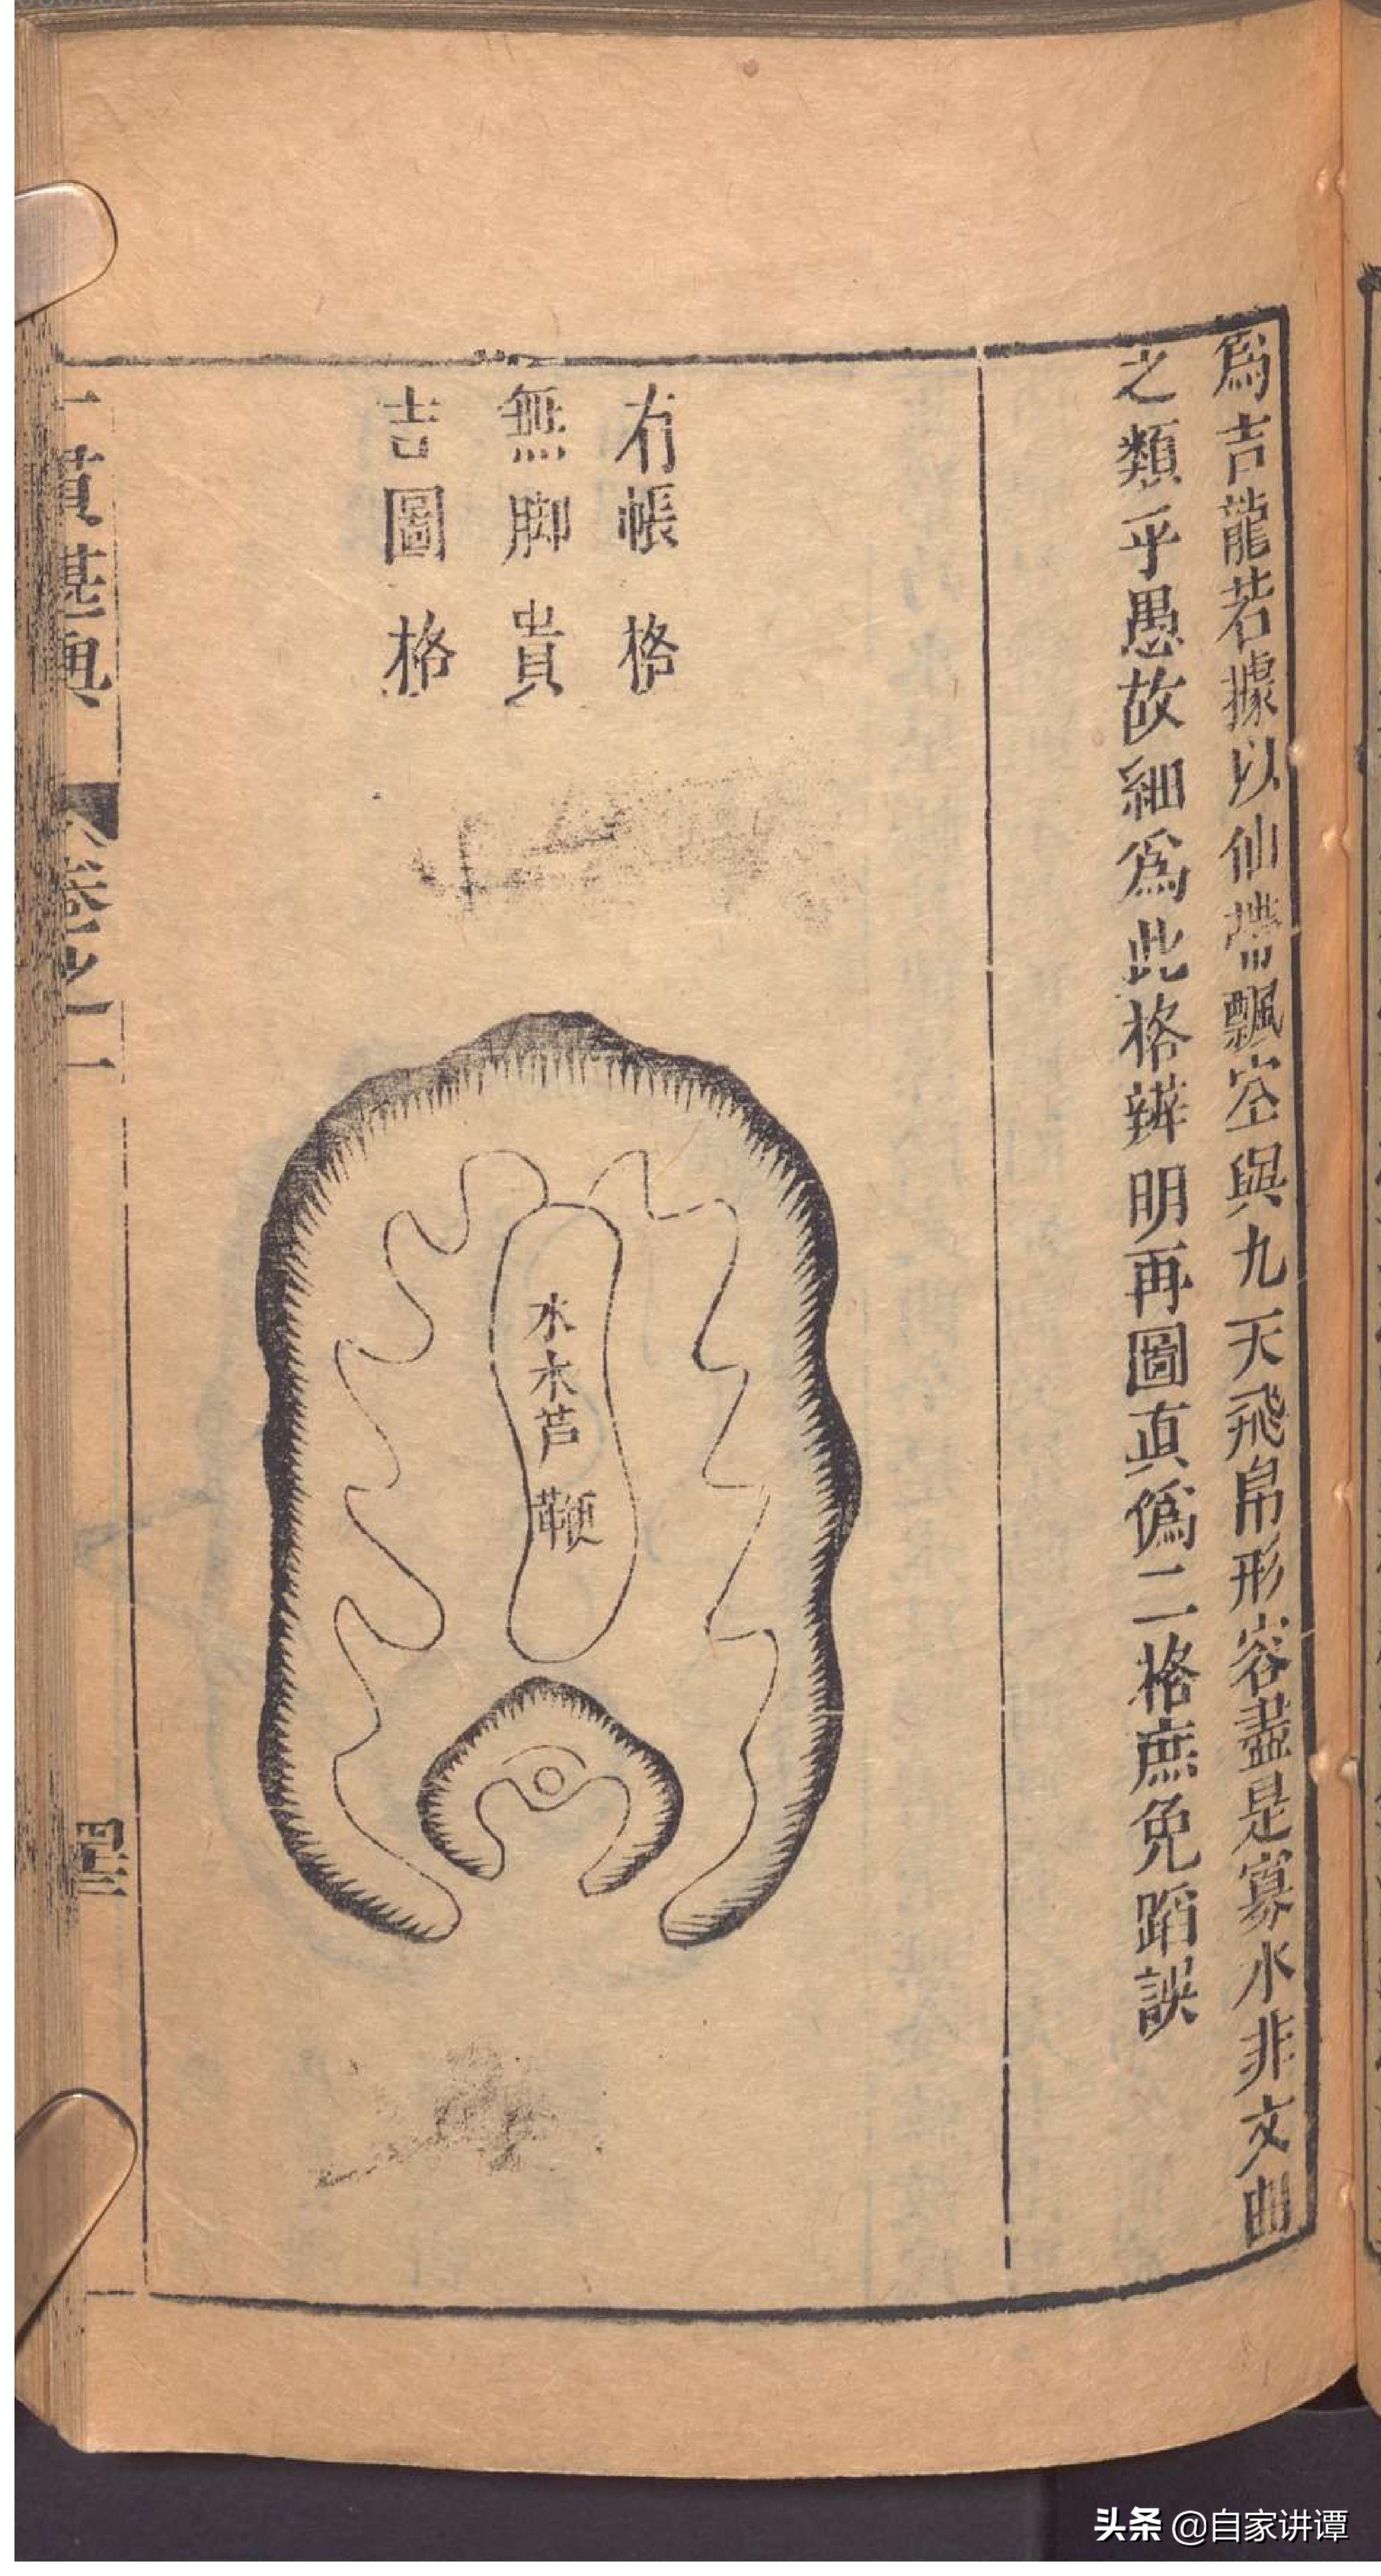 爲吉龍若據以仙帶飄空與九天飛帛形容盡是寡水非文曲
之類乎愚故細爲此格辨明再圖真僞二格庶免蹈誤
有帳格
無脚貴
吉圖格
水木芦鞭
一貫堪輿
卷之一
頭条 @自家讲谭